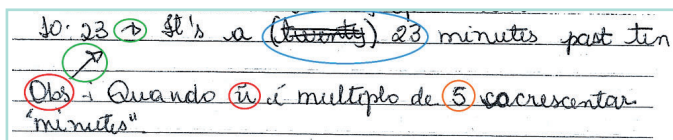 10:23 → It's a (twenty) 23 minutes past ten
Obs: Quando ñ é multiplo de 5 acrescentar
"minutes".